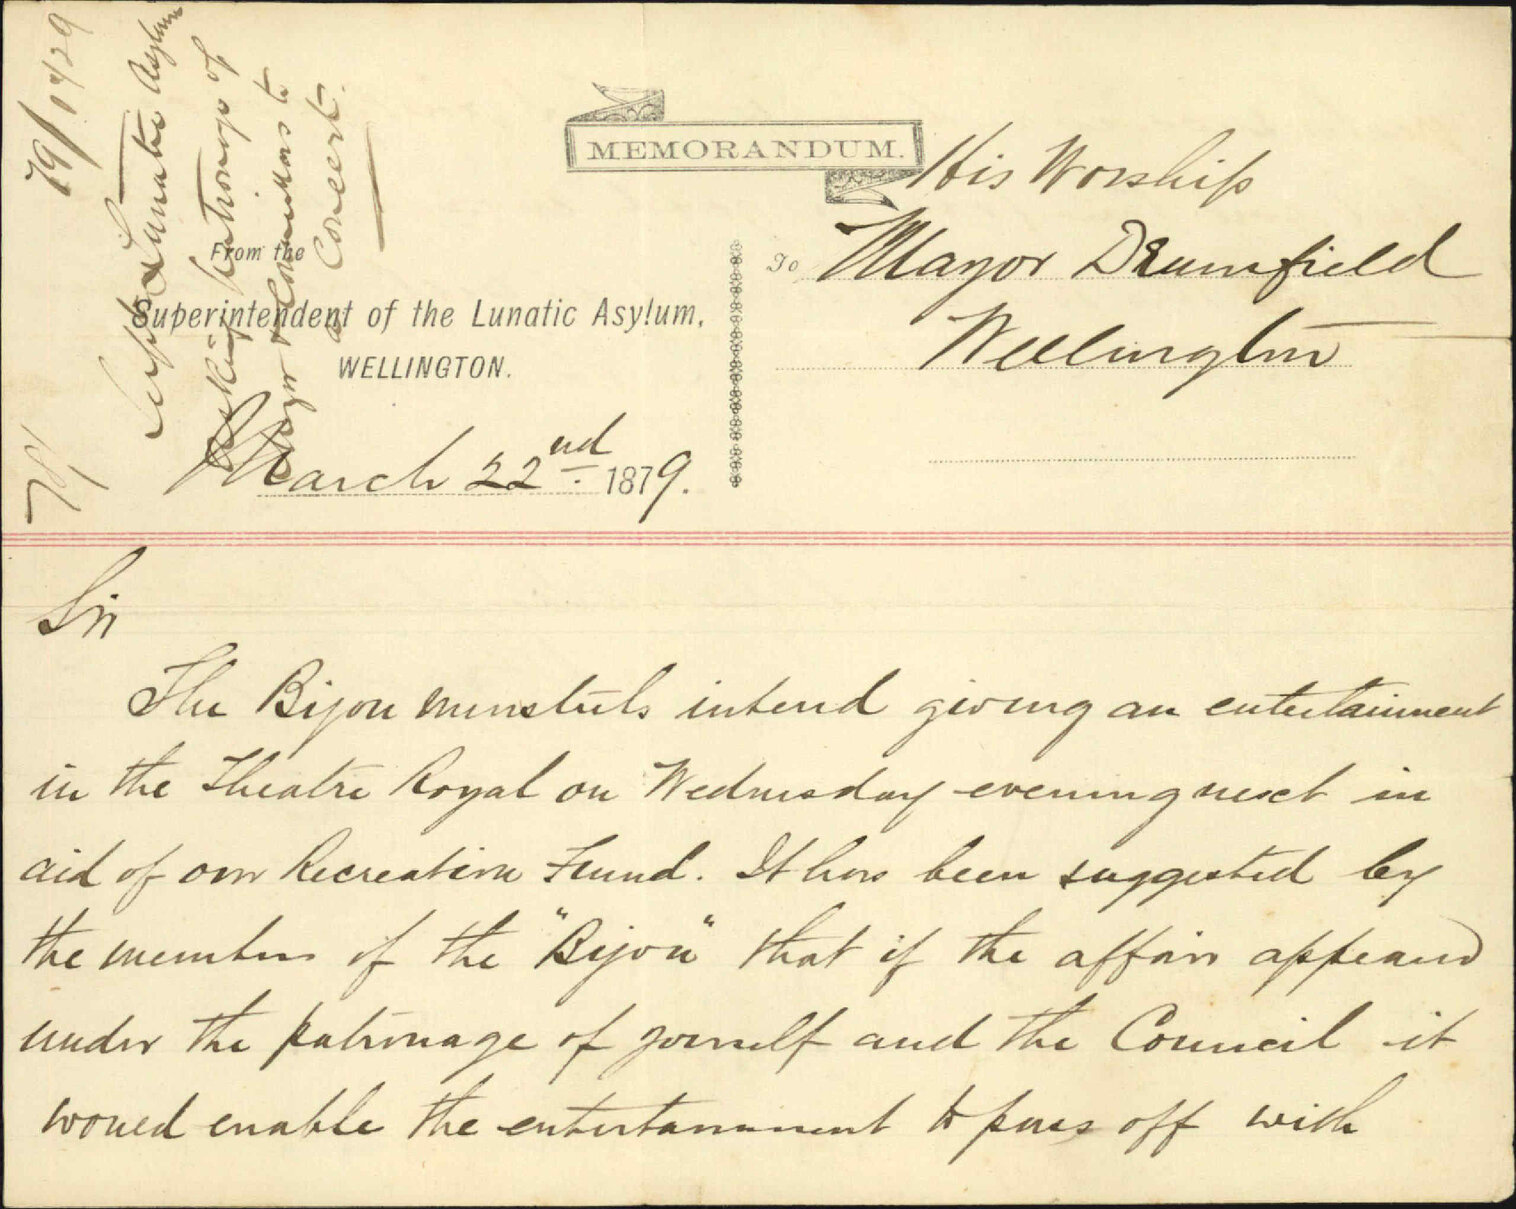 79/1429
Supt Lunatic Asylum
Asking Patronage of
Mayor & Councillors to
a Concert.
MEMORANDUM.
From the
Superintendent of the Lunatic Asylum,
WELLINGTON.
March 22nd. 1879.
To His Worship
Mayor Drumfield
Wellington
Sir
The Bijou minstrels intend giving an entertainment
in the Theatre Royal on Wednesday evening next in
aid of our Recreation Fund. It has been suggested by
the members of the "Bijou" that if the affair appeared
under the patronage of yourself and the Council it
would enable the entertainment to pass off with